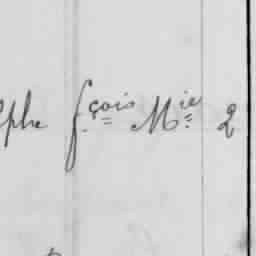 lphe fçois Mie 2